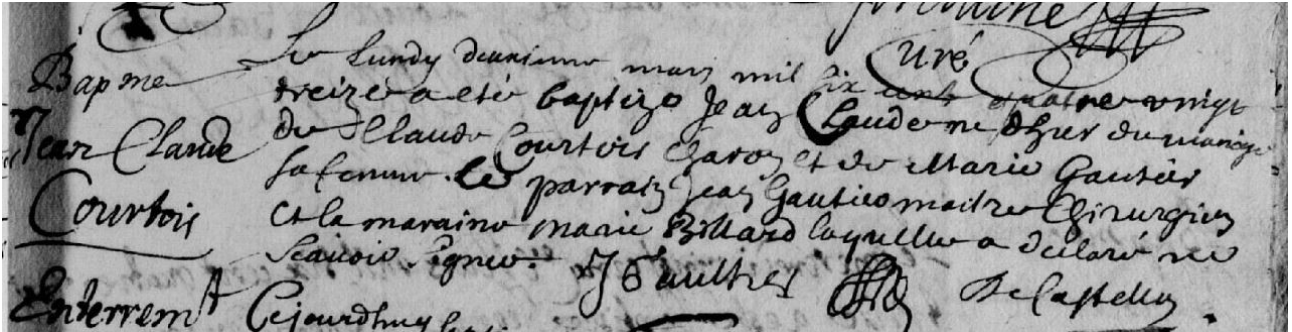 uré
Bapme
Jean Claude
Courtois
Le Lundy deuxieme mars mil six cents quatre vingt
treize a eté baptizé Jean Claude né d'hier du mariage
de Claude Courtois charon et de Marie Gautier
sa femme. Le parrain Jean Gautier maitre chirurgien
Et la maraine marie Billard laquelle a declaré ne
scavoir signer. J Gaultier De Castellon
Enterremt Cejourdhuy